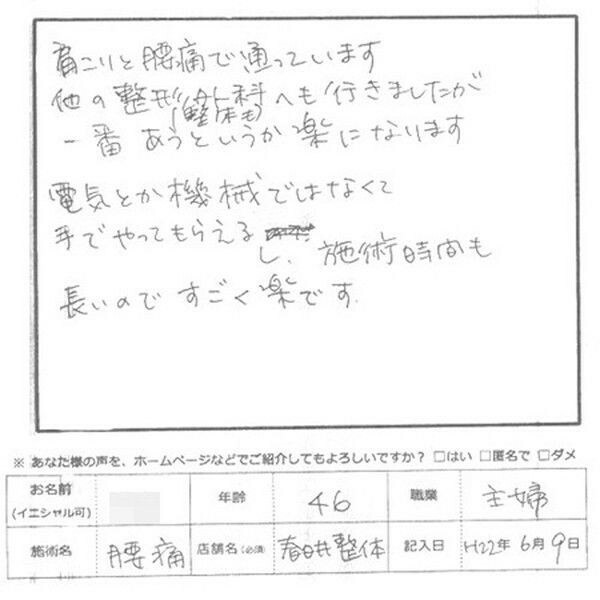 肩こりと腰痛で通っています
他の整形外科へも行きましたが
(整体も)
一番 あうというか楽になります
電気とか機械ではなくて
手でやってもらえる
し、施術時間も
長いので すごく楽です.
※ あなた様の声を、ホームページなどでご紹介してもよろしいですか？ □はい □匿名で □ダメ
お名前 (イニシャル可) 年齢 46 職業 主婦
施術名 腰痛 店舗名(必須) 春日井整体 記入日 H22年 6月 9日